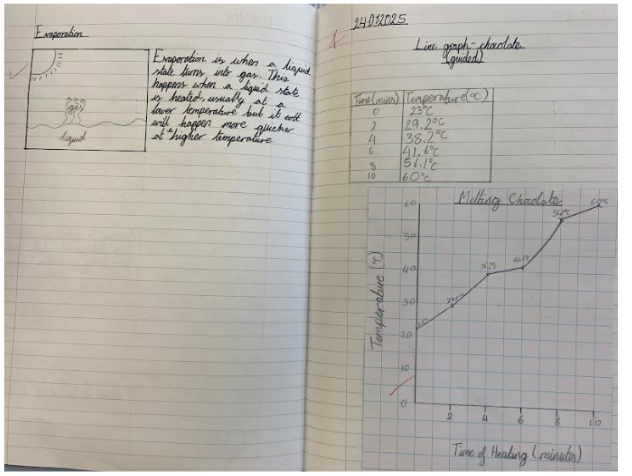 Evaporation
Evaporation is when a liquid
state turns into gas. This
happens when a liquid state
is heated, usually at a
lower temperature but it
will happen more quicker
at a higher temperature
gas
liquid
24.03.2025
Line graph - chocolate
(guided)
Time (mins) Temperature (°C)
0 23°C
2 29.2°C
4 38.2°C
6 41.6°C
8 56.1°C
10 60°C
Melting Chocolate
Temperature (°C)
60
50
40
30
20
10
0
38.2°C
60°C
2 4 6 8 10
Time of Heating (minutes)